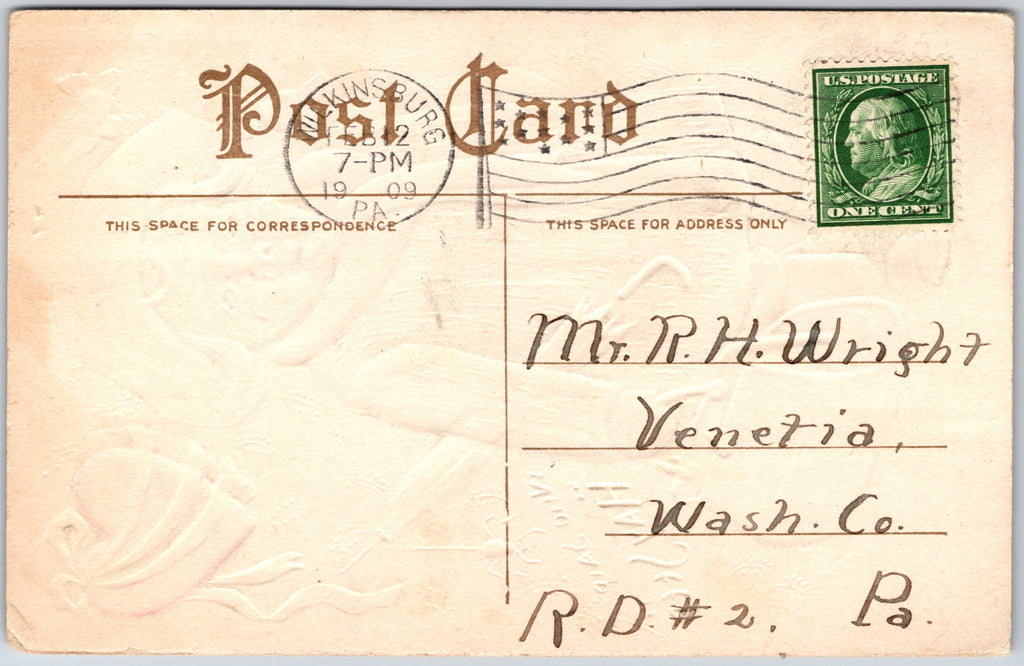 Post Card
WILKINSBURG
FEB 12
7-PM
1909
PA.
U.S. POSTAGE
ONE CENT
THIS SPACE FOR CORRESPONDENCE
THIS SPACE FOR ADDRESS ONLY
Mr. R. H. Wright
Venetia,
Wash. Co.
R.D. # 2. Pa.